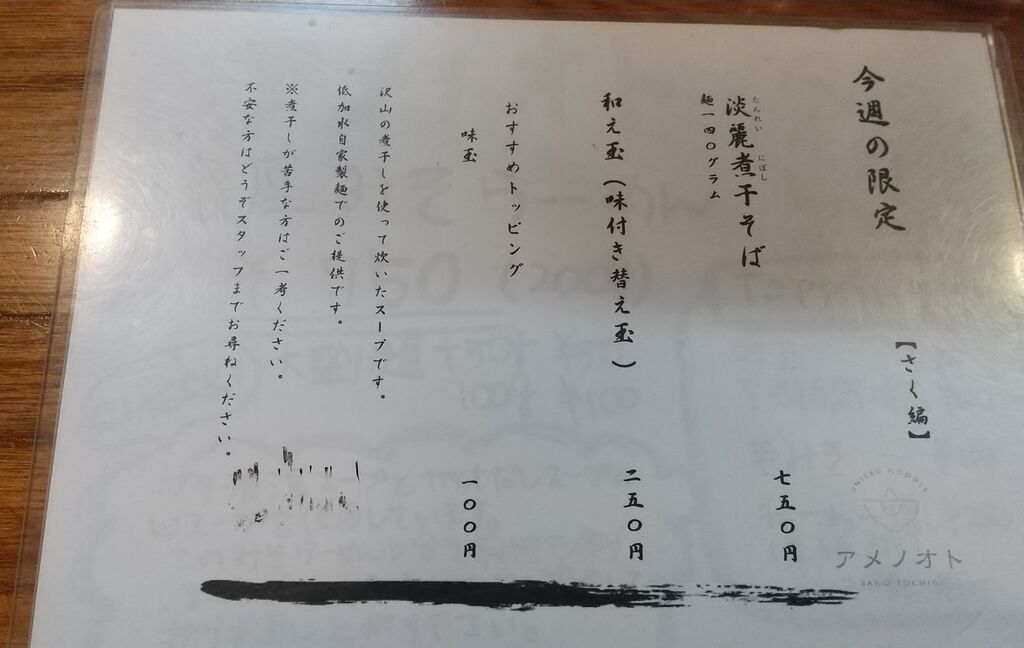 今週の限定
【さく編】
淡麗煮干そば
たんれい
にぼし
七五〇円
麺一四〇グラム
和え玉(味付き替え玉)
二五〇円
おすすめトッピング
味玉
一〇〇円
沢山の煮干しを使って炊いたスープです。
低加水自家製麺でのご提供です。
※煮干しが苦手な方はご一考ください。
不安な方はどうぞスタッフまでお尋ねください。
UNITED NOODLE
アメノオト
SANO TOCHIGI